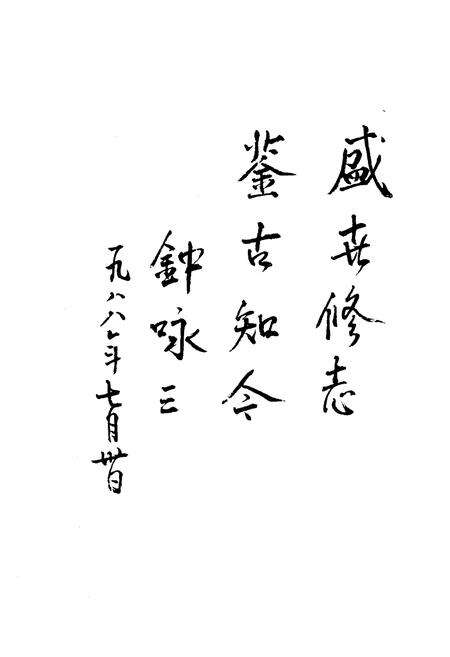 盛世修志
鉴古知今
鈡咏三
一九八八年七月卅日